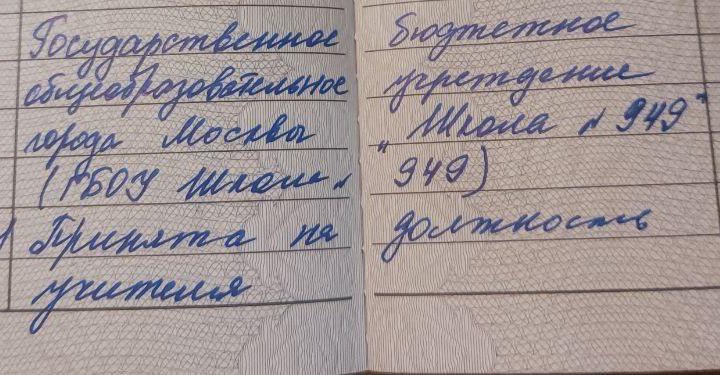 Государственное бюджетное
общеобразовательное учреждение
города Москвы "Школа № 949"
(ГБОУ Школа № 949)
Принята на должность
учителя